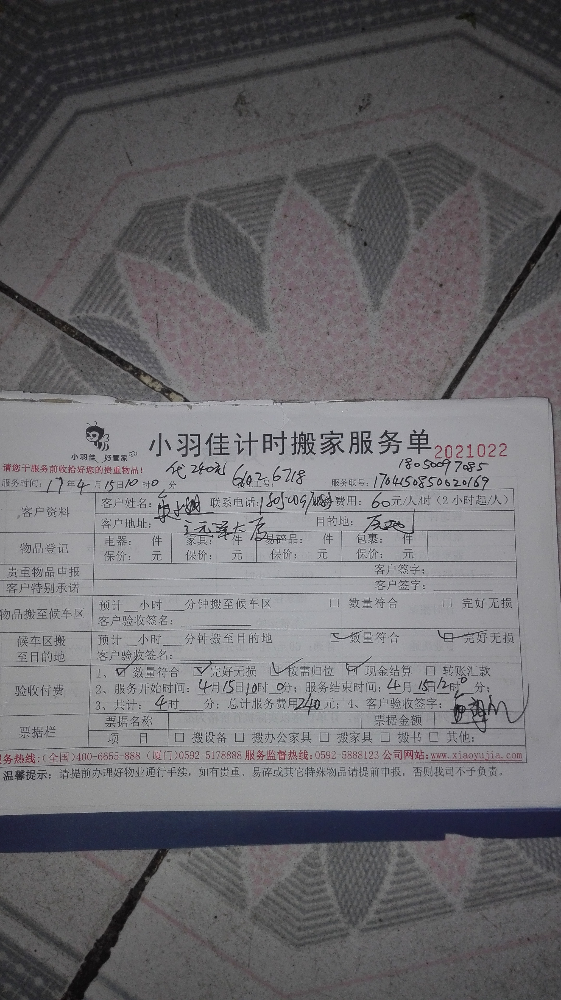 小羽佳 好管家
小羽佳计时搬家服务单 2021022
请您于服务前收拾好您的贵重物品! 代240元 6602 6718 18050097085
服务时间: 17年4月15日10时0分 服务账号: 1704150850620169
客户资料 客户姓名: 联系电话: 费用: 60元/人/时 (2小时起/人)
客户地址: 目的地:
物品登记 电器: 件 家具: 件 易碎品: 件 包裹: 件
保价: 元 保价: 元 保价: 元 保价: 元
贵重物品申报 客户签字:
客户特别承诺 客户签字:
物品搬至候车区 预计__小时___分钟搬至候车区 □ 数量符合 □ 完好无损
客户验收签名:
候车区搬至目的地 预计__小时___分钟搬至目的地 ☑ 数量符合 ☑ 完好无损
客户验收签名:
验收付费 1、☑ 数量符合 ☑ 完好无损 ☑ 按需归位 ☑ 现金结算 □ 转账汇款
2、服务开始时间: 4月15日10时0分; 服务结束时间: 4月15日12时0分;
3、共计: 4时__分; 总计服务费用240元; 4、客户验收签字:
票据栏 票据名称 票据金额
项 目 □ 搬设备 □ 搬办公家具 □ 搬家具 □ 搬书 □ 其他:
服务热线:(全国)400-6555-888 (厦门)0592-5178888 服务监督热线:0592-5888123 公司网站:www.xiaoyujia.com
温馨提示: 请提前办理好物业通行手续, 如有贵重、易碎或其它特殊物品请提前申报, 否则我司不予负责。